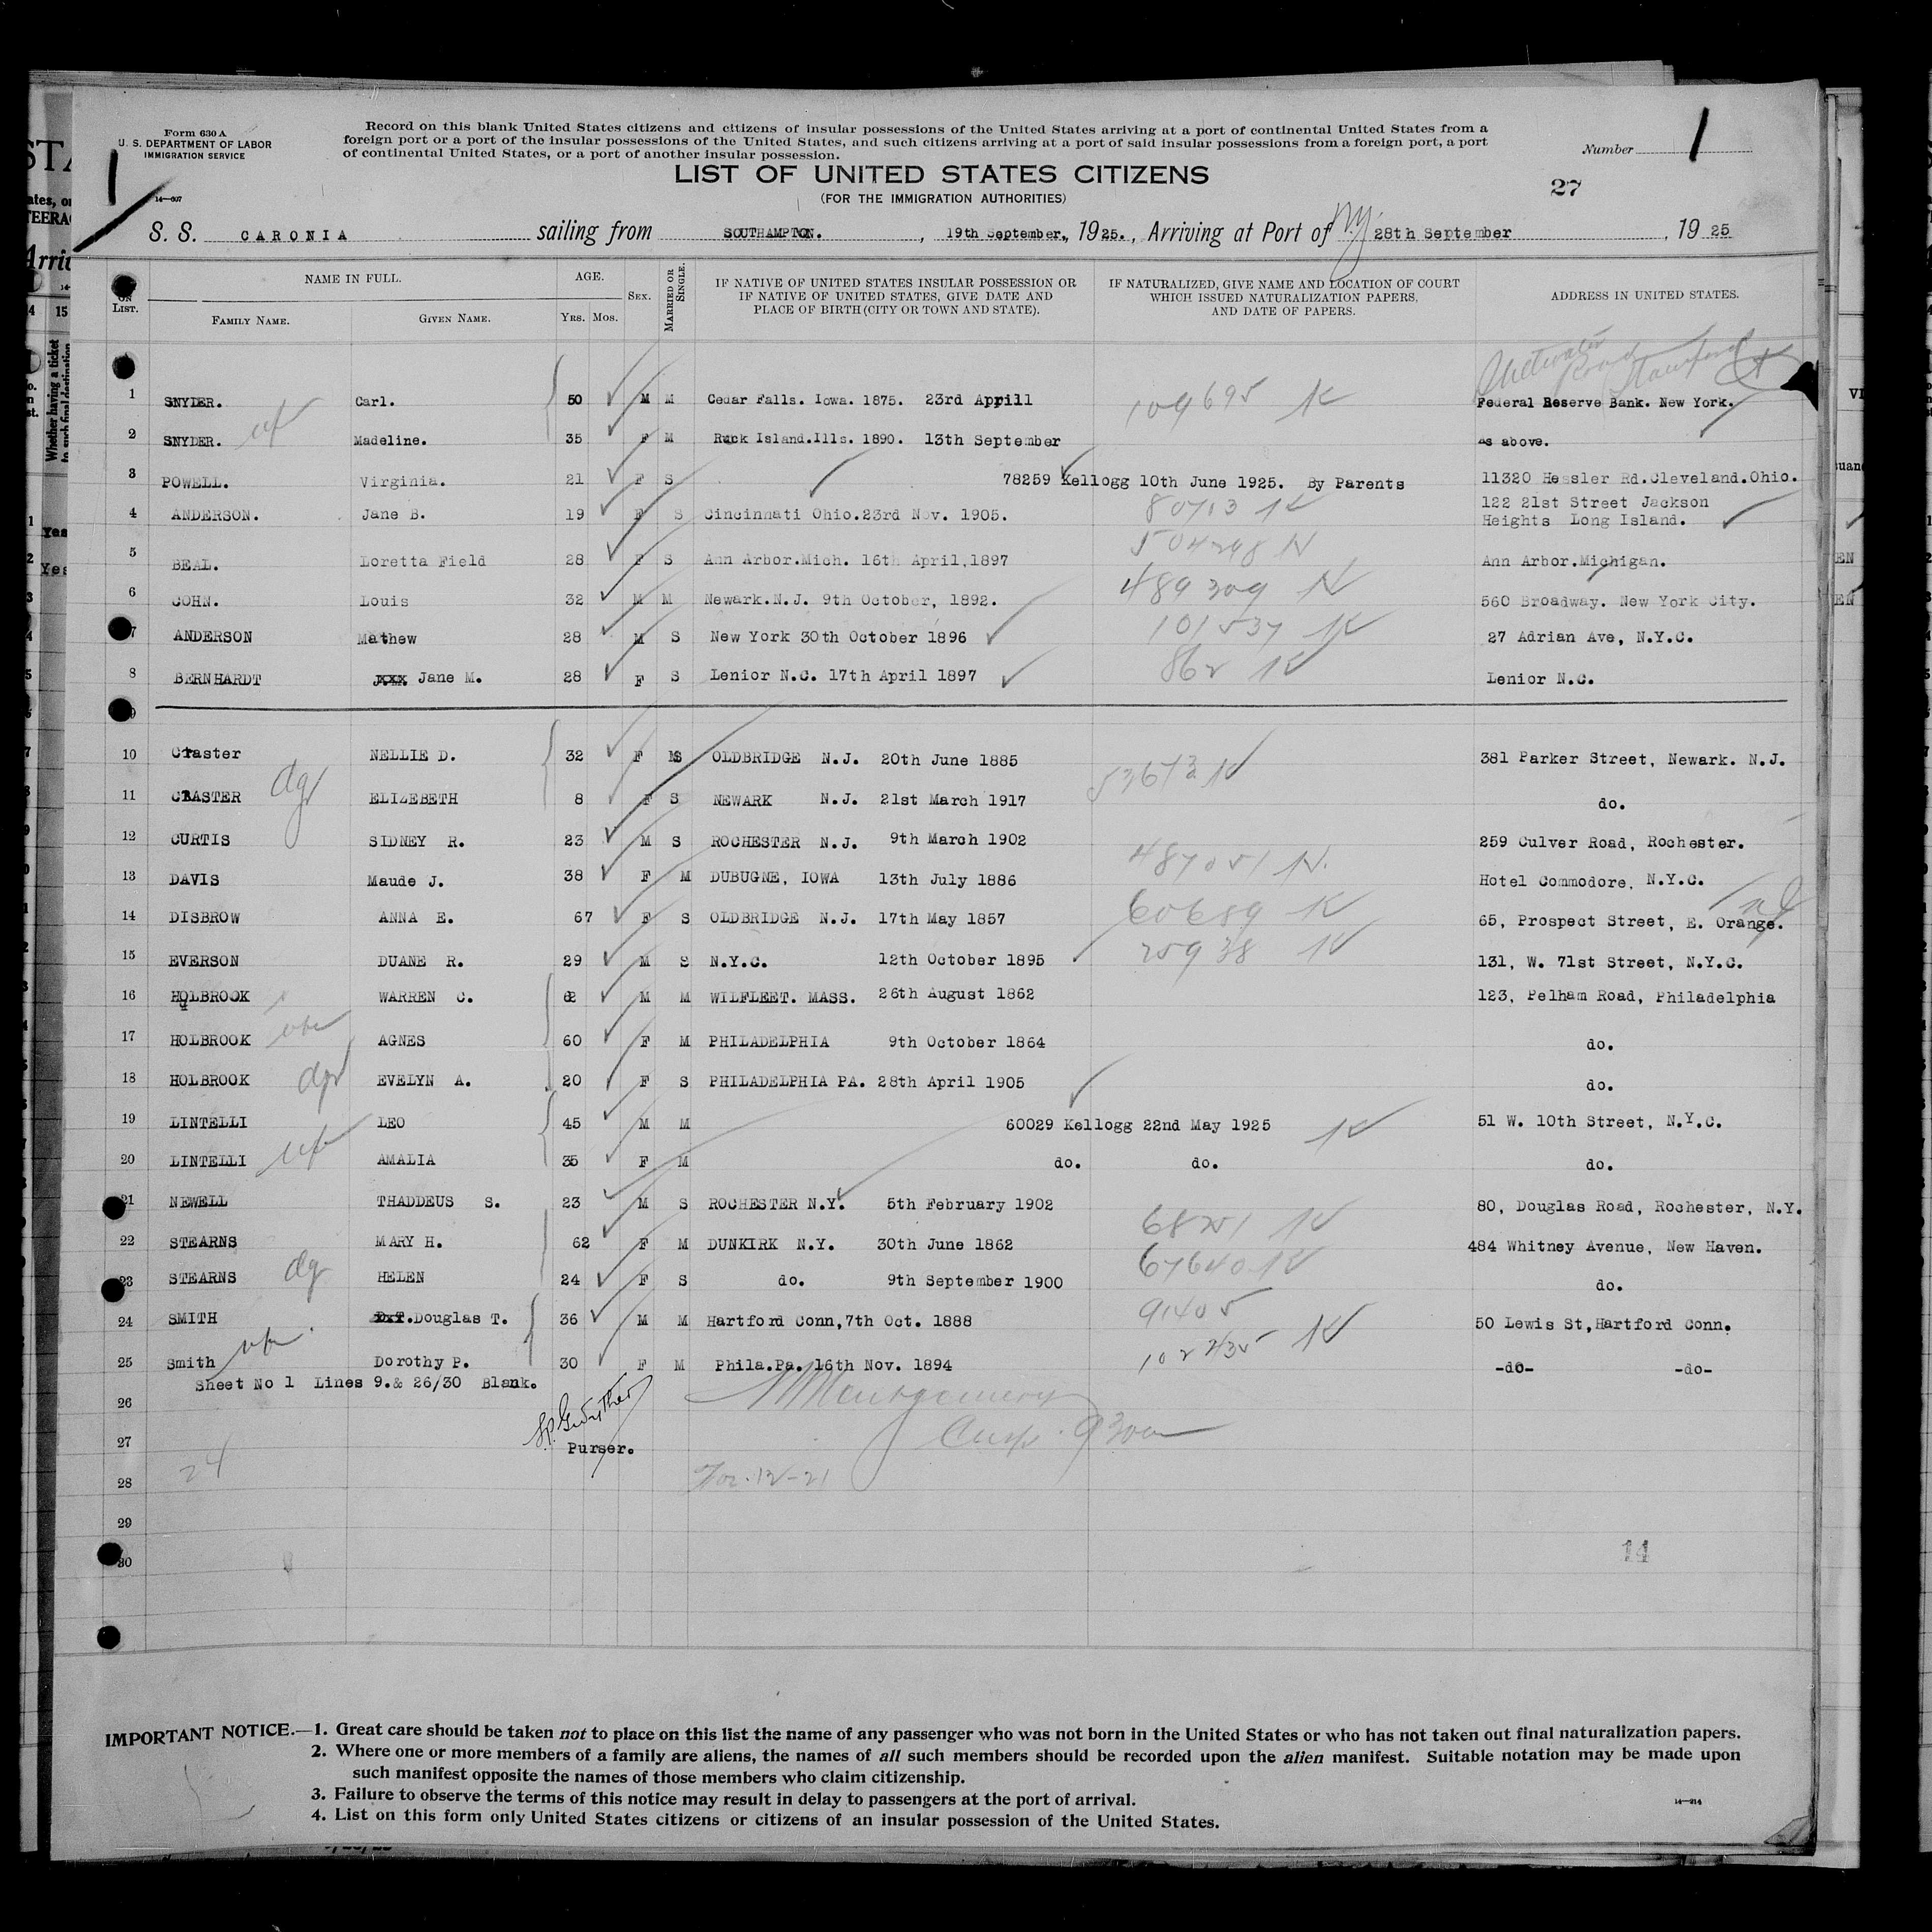 Form 630 A
U. S. DEPARTMENT OF LABOR
IMMIGRATION SERVICE
14—607
Record on this blank United States citizens and citizens of insular possessions of the United States arriving at a port of continental United States from a
foreign port or a port of the insular possessions of the United States, and such citizens arriving at a port of said insular possessions from a foreign port, a port
of continental United States, or a port of another insular possession.
Number 1
1
LIST OF UNITED STATES CITIZENS
(FOR THE IMMIGRATION AUTHORITIES)
27
S. S. CARONIA sailing from SOUTHAMPTON. , 19th September., 1925. , Arriving at Port of N.Y. 28th September , 19 25
ON LIST. NAME IN FULL. FAMILY NAME. GIVEN NAME. AGE. YRS. MOS. SEX. MARRIED OR SINGLE. IF NATIVE OF UNITED STATES INSULAR POSSESSION OR IF NATIVE OF UNITED STATES, GIVE DATE AND PLACE OF BIRTH (CITY OR TOWN AND STATE). IF NATURALIZED, GIVE NAME AND LOCATION OF COURT WHICH ISSUED NATURALIZATION PAPERS, AND DATE OF PAPERS. ADDRESS IN UNITED STATES.
Road Stamford Ct
1 SNYDER. Carl. 50 M M Cedar Falls. Iowa. 1875. 23rd Appill 109695 K Federal Reserve Bank. New York.
2 SNYDER. Madeline. 35 F M Ruck Island.Ills. 1890. 13th September as above.
3 POWELL. Virginia. 21 F S 78259 Kellogg 10th June 1925. By Parents 11320 Hessler Rd.Cleveland.Ohio.
4 ANDERSON. Jane B. 19 F S Cincinnati Ohio.23rd Nov. 1905. 80713 K 122 21st Street Jackson
Heights Long Island.
5 BEAL. Loretta Field 28 F S Ann Arbor.Mich. 16th April,1897 504248 N Ann Arbor.Michigan.
6 COHN. Louis 32 M M Newark.N.J. 9th October, 1892. 489309 N 560 Broadway. New York City.
7 ANDERSON Mathew 28 M S New York 30th October 1896 101537 K 27 Adrian Ave, N.Y.C.
8 BERNHARDT Jane M. 28 F S Lenior N.C. 17th April 1897 862 K Lenior N.C.
9
10 Craster NELLIE D. 32 F S OLDBRIDGE N.J. 20th June 1885 53673 K 381 Parker Street, Newark. N.J.
11 CRASTER ELIZEBETH 8 F S NEWARK N.J. 21st March 1917 do.
12 CURTIS SIDNEY R. 23 M S ROCHESTER N.J. 9th March 1902 259 Culver Road, Rochester.
13 DAVIS Maude J. 38 F M DUBUGNE, IOWA 13th July 1886 487051 N. Hotel Commodore, N.Y.C.
14 DISBROW ANNA E. 67 F S OLDBRIDGE N.J. 17th May 1857 60689 K 65, Prospect Street, E. Orange.
15 EVERSON DUANE R. 29 M S N.Y.C. 12th October 1895 25938 K 131, W. 71st Street, N.Y.C.
16 HOLBROOK WARREN C. 62 M M WILFLEET. MASS. 26th August 1862 123, Pelham Road, Philadelphia
17 HOLBROOK AGNES 60 F M PHILADELPHIA 9th October 1864 do.
18 HOLBROOK EVELYN A. 20 F S PHILADELPHIA PA. 28th April 1905 do.
19 LINTELLI LEO 45 M M 60029 Kellogg 22nd May 1925 K 51 W. 10th Street, N.Y.C.
20 LINTELLI AMALIA 35 F M do. do. do.
21 NEWELL THADDEUS S. 23 M S ROCHESTER N.Y. 5th February 1902 80, Douglas Road, Rochester, N.Y.
22 STEARNS MARY H. 62 F M DUNKIRK N.Y. 30th June 1862 68251 K 484 Whitney Avenue, New Haven.
23 STEARNS HELEN 24 F S do. 9th September 1900 67640 K do.
24 SMITH Douglas T. 36 M M Hartford Conn,7th Oct. 1888 91405 50 Lewis St,Hartford Conn.
25 Smith Dorothy P. 30 F M Phila.Pa. 16th Nov. 1894 102435 K -do- -do-
Sheet No 1 Lines 9.& 26/30 Blank.
26
Montgomery
27 Purser.
28 24
29
30 14
IMPORTANT NOTICE.—1. Great care should be taken not to place on this list the name of any passenger who was not born in the United States or who has not taken out final naturalization papers.
2. Where one or more members of a family are aliens, the names of all such members should be recorded upon the alien manifest. Suitable notation may be made upon
such manifest opposite the names of those members who claim citizenship.
3. Failure to observe the terms of this notice may result in delay to passengers at the port of arrival.
4. List on this form only United States citizens or citizens of an insular possession of the United States.
14—214